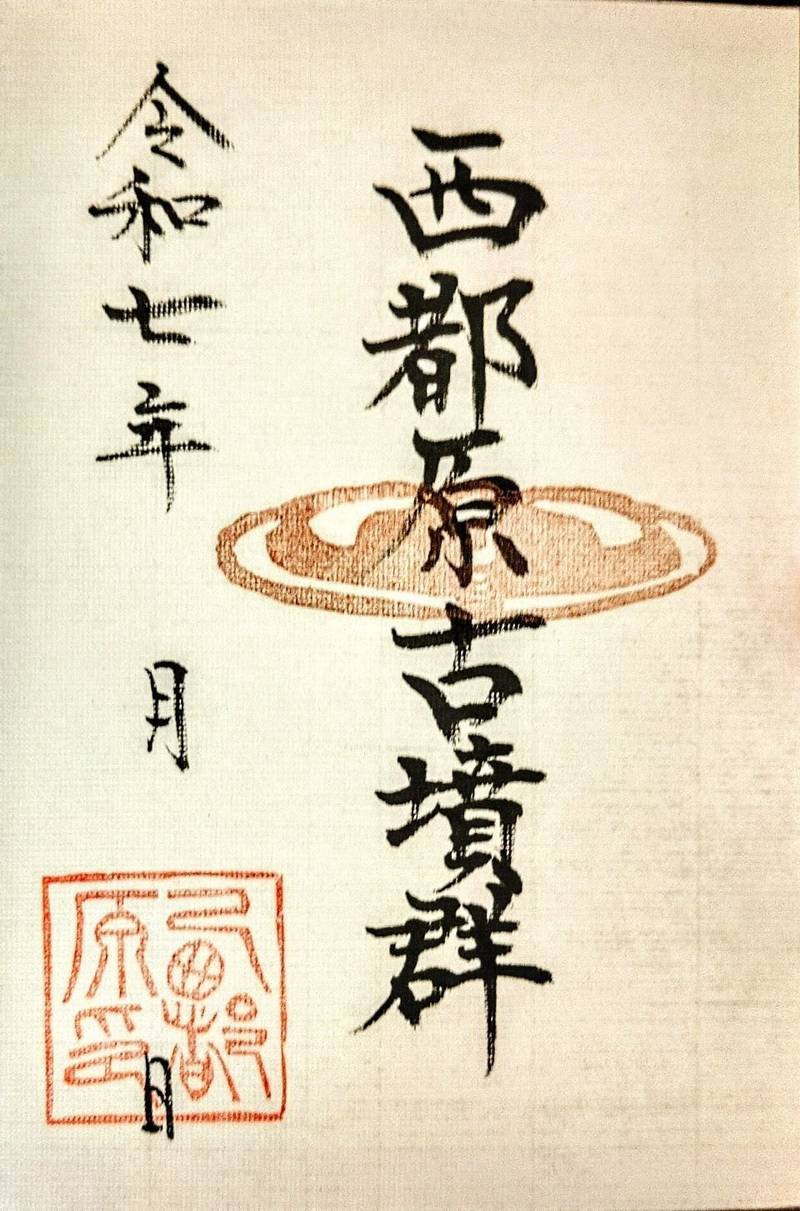 西都原古墳群
令和七年 月 日
西都
原印